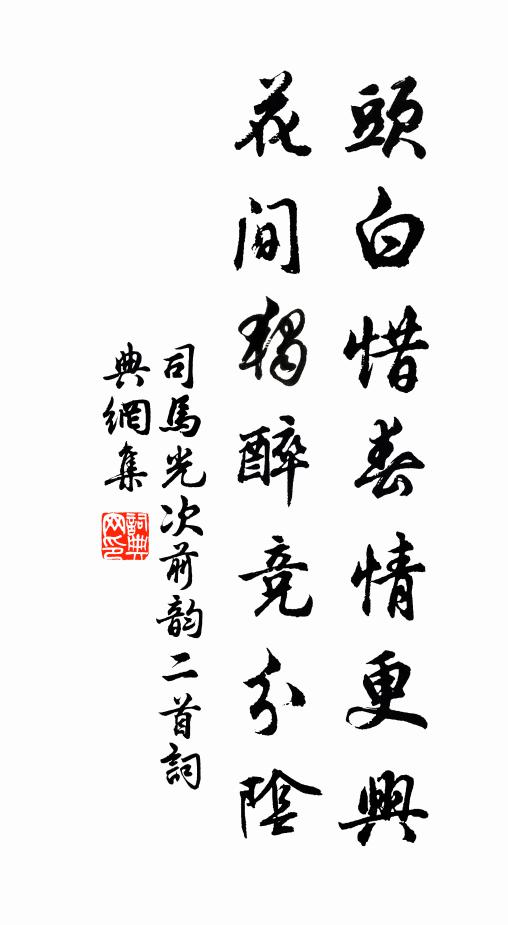 頭白惜春情更興
花间獨醉竞分陰
司馬光次前韵二首詞
典網集
詞典
网印